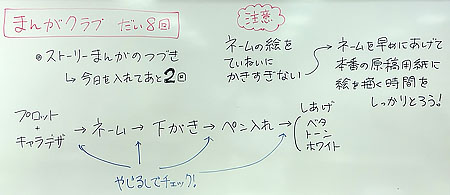 まんがクラブ だい8回
◎ストーリーまんがのつづき
↳今日を入れてあと2回
注意
ネームの絵を
ていねいに
かきすぎない
→ネームを早めにあげて
本番の原稿用紙に
絵を描く時間を
しっかりとろう!
プロット
+
キャラデザ
→ネーム→下がき→ペン入れ→
しあげ
ベタ
トーン
ホワイト
やじるしでチェック!